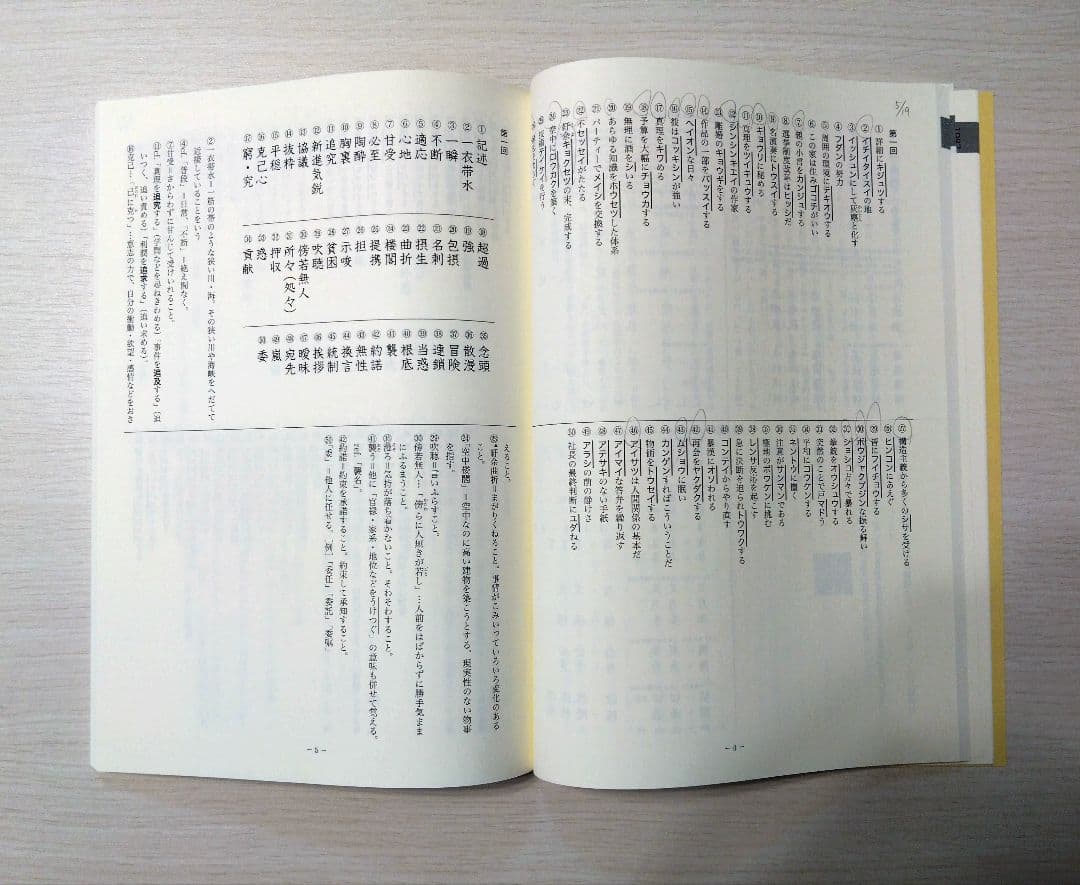 5/9
第一回
① 詳細にキジュツする
② イチイタイスイの地
③ イッシュンにして灰燼と化す
④ フダンの努力
⑤ 周囲の環境にテキオウする
⑥ この家は住みゴコチがいい
⑦ 親の小言をカンジュする
⑧ 選挙制度改革はヒッシだ
⑨ 名演奏にトウスイする
⑩ キョウリに秘める
⑪ 真理をツイキュウする
⑫ シンシンキエイの作家
⑬ 離婚のキョウギをする
⑭ 作品の一部をバッスイする
⑮ ヘイオンな日々
⑯ 彼はコッキシンが強い
⑰ 真理をキワめる
⑱ 予算を大幅にチョウカする
⑲ 無理に酒をシいる
⑳ あらゆる知識をホウセツした体系
㉑ パーティーでメイシを交換する
㉒ 不セッセイがたたる
㉓ 紆余キョクセツの末、完成する
㉔ 空中にロウカクを築く
㉗ 構造主義から多くのシサを受ける
㉘ ヒンコンにあえぐ
㉙ 皆にフイチョウする
㉚ ボウジャクブジンな振る舞い
㉛ ショショ方々で暴れる
㉜ 拳銃をオウシュウする
㉝ 突然のことで戸マドう
㉞ 平和にコウケンする
㉟ ネントウに置く
㊱ 注意がサンマンである
㊲ 極地のボウケンに挑む
㊳ レンサ反応を起こす
㊴ 急に決断を迫られトウワクする
㊵ コンテイからやり直す
㊶ 暴漢にオソわれる
㊷ 再会をヤクダクする
㊸ ムショウに眠い
㊹ カンゲンすればこういうことだ
㊺ 物価をトウセイする
㊻ アイサツは人間関係の基本だ
㊼ アイマイな答弁を繰り返す
㊽ アテサキのない手紙
㊾ アラシの前の静けさ
㊿ 社長の最終判断にユダねる
－4－
第一回
① 記述
② 一衣帯水
③ 一瞬
④ 不断
⑤ 適応
⑥ 心地
⑦ 甘受
⑧ 必至
⑨ 陶酔
⑩ 胸裏
⑪ 追究
⑫ 新進気鋭
⑬ 協議
⑭ 抜粋
⑮ 平穏
⑯ 克己心
⑰ 窮・究
⑱ 超過
⑲ 強
⑳ 包摂
㉑ 名刺
㉒ 摂生
㉓ 曲折
㉔ 楼閣
㉕ 提携
㉖ 担
㉗ 示唆
㉘ 貧困
㉙ 吹聴
㉚ 傍若無人
㉛ 所々（処々）
㉜ 押収
㉝ 惑
㉞ 貢献
㉟ 念頭
㊱ 散漫
㊲ 冒険
㊳ 連鎖
㊴ 当惑
㊵ 根底
㊶ 襲
㊷ 約諾
㊸ 無性
㊹ 換言
㊺ 統制
㊻ 挨拶
㊼ 曖昧
㊽ 宛先
㊾ 嵐
㊿ 委
② 一衣帯水＝一筋の帯のような狭い川・海。その狭い川や海峡をへだてて
近接していることをいう
④ cf.「普段」＝日常、「不断」＝絶え間なく。
⑦ 甘受＝さからわずに甘んじて受けいれること。
⑪ cf.「真理を追究する」（学問などを尋ねきわめる）「事件を追及する」（追
いつく、追い責める）「利潤を追求する」（追い求める）
⑯ 克己…「己に克つ」…意志の力で、自分の衝動・欲望・感情などをおさ
えること。
㉓ 紆余曲折＝まがりくねること。事情がこみいっていろいろ変化のある
こと。
㉔ 「空中楼閣」＝空中なのに高い建物を築こうとする、現実性のない物事
を指す。
㉙ 吹聴＝言いふらすこと。
㉚ 傍若無人…「傍らに人無きが若し」…人前をはばからずに勝手気まま
にふるまうこと。
㊱ 漫ろ＝気持が落ち着かないこと。そわそわすること。
㊶ 襲う＝他に「官禄・家系・地位などをうけつぐ」の意味も併せて覚える。
cf.「襲名」。
㊷ 約諾＝約束を承諾すること。約束して承知すること。
㊿ 「委」＝他人に任せる。[例]「委任」「委託」「委嘱」
－5－